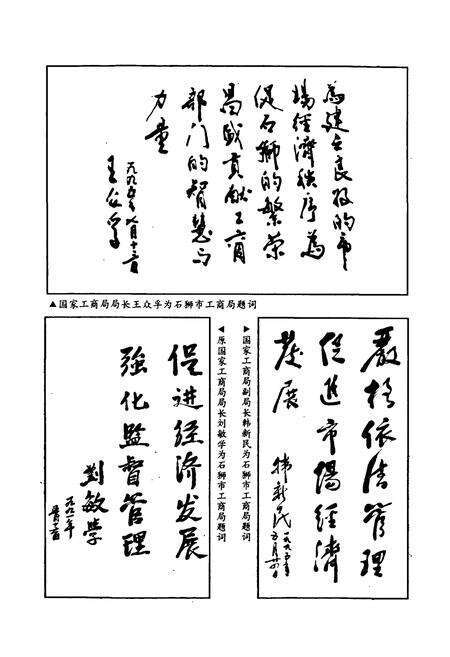 为建立良好的市
场经济秩序为
促石狮的繁荣
昌盛贡献工商
部门的智慧与
力量
一九九五年
王众孚
▲国家工商局局长王众孚为石狮市工商局题词
▶国家工商局副局长韩新民为石狮市工商局题词
嚴格依法管理
促進市場經濟
發展
韩新民
一九九五年
五月廿四日
◀原国家工商局局长刘敏学为石狮市工商局题词
促进经济发展
強化监督管理
刘敏学
一九九一年